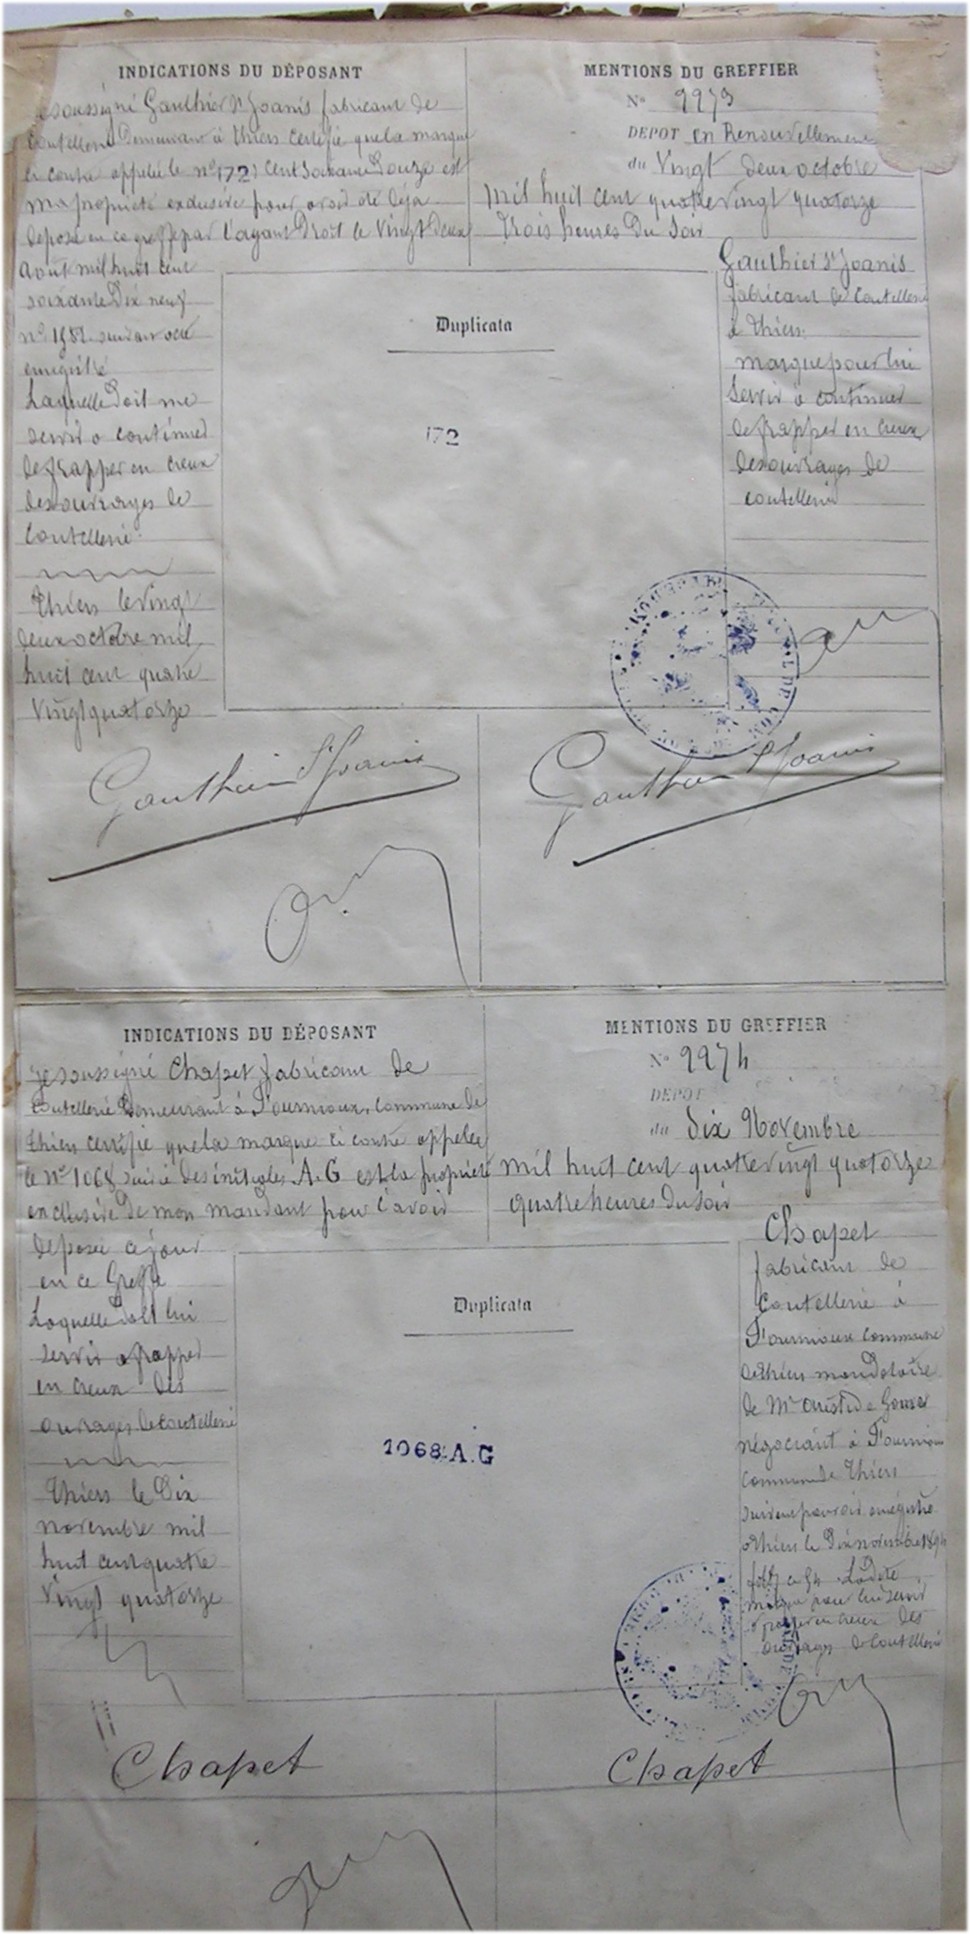 INDICATIONS DU DÉPOSANT
Je soussigné Gauthier St Joanis fabricant de
coutellerie Demeurant à Thiers certifie que la marque
ci contre appelée le no (172) Cent soixante Douze est
ma propriété exclusive pour avoir été déjà
deposé en ce greffe par l'ayant Droit le Vingt Deux
aout mil huit cent
soixante Dix neuf
enregistré
Laquelle Doit me
servir a continuer
de frapper en creux
des ouvrages de
Coutellerie.
Thiers le Vingt
deux octobre mil
huit cent quatre
Vingt quatorze
Gauthier St Joanis
MENTIONS DU GREFFIER
No 2273
DEPOT en Renouvellement
du Vingt deux octobre
mil huit cent quatre vingt quatorze
trois heures Du Soir
Gauthier St Joanis
fabricant de Coutellerie
à Thiers.
marque pour lui
Servir à continuer
de frapper en creux
des ouvrages de
coutellerie
Duplicata
172
Gauthier St Joanis
INDICATIONS DU DÉPOSANT
Je soussigné Chapet fabricant de
Coutellerie Demeurant à Fournioux, Commune de
Thiers certifie que la marque ci contre appelée
le No 1068 suivie des initiales A.G est la propriété
exclusive De mon mandant pour l'avoir
déposée ce jour
en ce Greffe
Laquelle doit lui
servir a frapper
en creux des
ouvrages de Coutellerie
Thiers le Dix
novembre mil
huit cent quatre
vingt quatorze
Chapet
MENTIONS DU GREFFIER
No 2274
DEPOT
du Dix Novembre
mil huit cent quatre vingt quatorze
quatre heures Du Soir
Chapet
fabricant de
Coutellerie à
Fournioux commune
de Thiers mandataire
de Mr
négociant à Fournioux
commune de Thiers
suivant pouvoir enregistré
a Thiers le Dix novembre 1894
marque pour lui servir
a frapper en creux des
ouvrages de Coutellerie
Duplicata
1068.A.G
Chapet